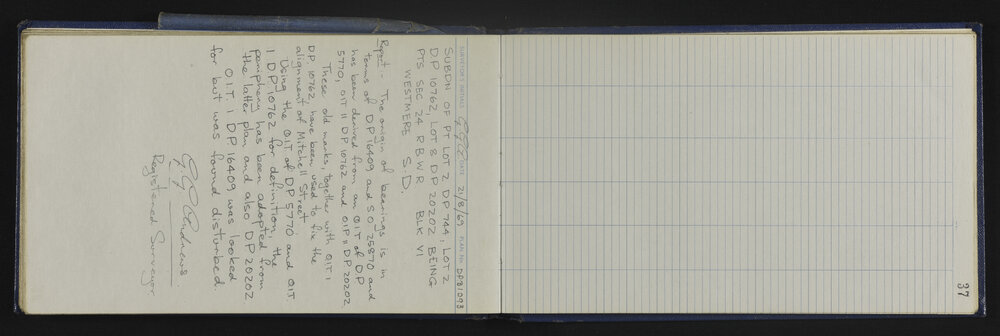 SURVEYOR'S INITIALS GGA DATE 21/8/69 PLAN No. DP 31093
SUBDN OF PT LOT 2 DP 744, LOT 2
DP 10762, LOT 8 DP 20202 BEING
PTS SEC 24 R B W R BLK VI
WESTMERE S.D.
Report - The origin of bearings is in
terms of DP 16409 and SO 25870 and
has been derived from an OIT of DP
5770, OIT II DP 10762 and OIP II DP 20202.
These old marks, together with OIT I
DP 10762, have been used to fix the
alignment of Mitchell Street.
Using the OIT of DP 5770 and OIT
I DP 10762 for definition, the
periphery has been adopted from
the latter plan and also DP 20202
OIT I DP 16409 was looked
for but was found disturbed.
GG Andrews
Registered Surveyor
37